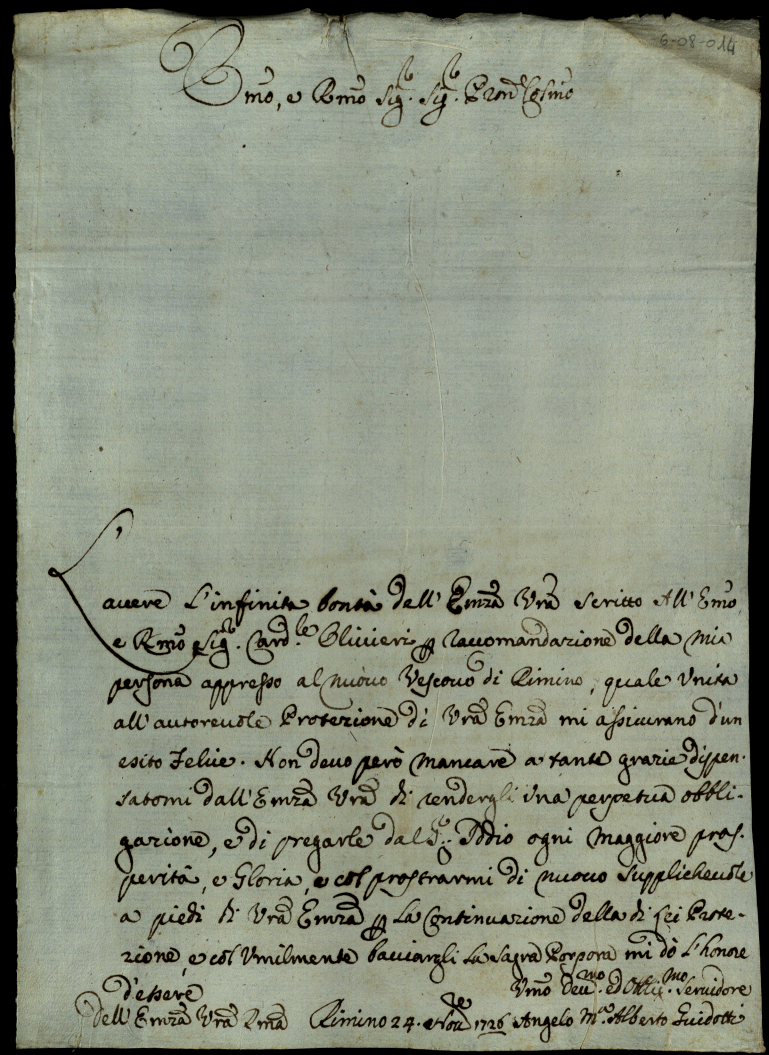 6-08-014
Emo, e Rmo Sig.r Sig.r Pron Colmo
L'
avere L'infinita bontà dell' Emza Vra scritto All' Emo,
e Rmo Sig.r Card.le Olivieri p raccomandazione della mia
persona appresso al nuovo Vescovo di Rimino, quale Unita
all' autorevole Protezione di Vra Emza mi assicurano d'un
esito Felice. Non devo però mancare a tante grazie dispen-
satomi dall' Emza Vra di rendergli una perpetua obbli-
gazione, e di pregarle dal S. Iddio ogni maggiore pros-
perità, e Gloria, e col prostrarmi di nuovo supplichevole
a piedi di Vra Emza p La Continuazione della di Lei Prote-
zione, e col Umilmente bacciargli La Sagra Porpora mi dò L'honore
d'essere
Dell' Emza Vra Rma Rimino 24. 9bre 1726
Umo Dev.mo ed Obbli.mo Servidore
Angelo M.a Alberto Guidotti